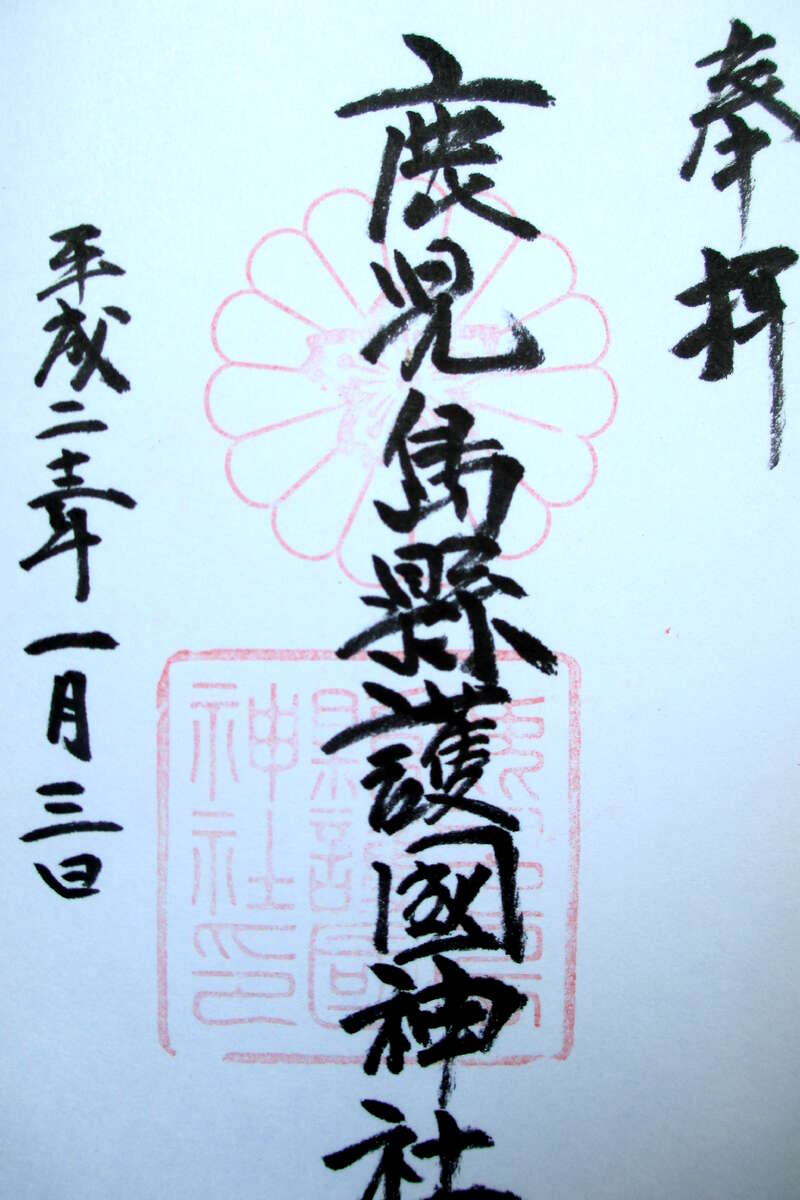 奉拝
鹿児島縣護國神社
平成二十三年一月三日
鹿児島
縣護國
神社印